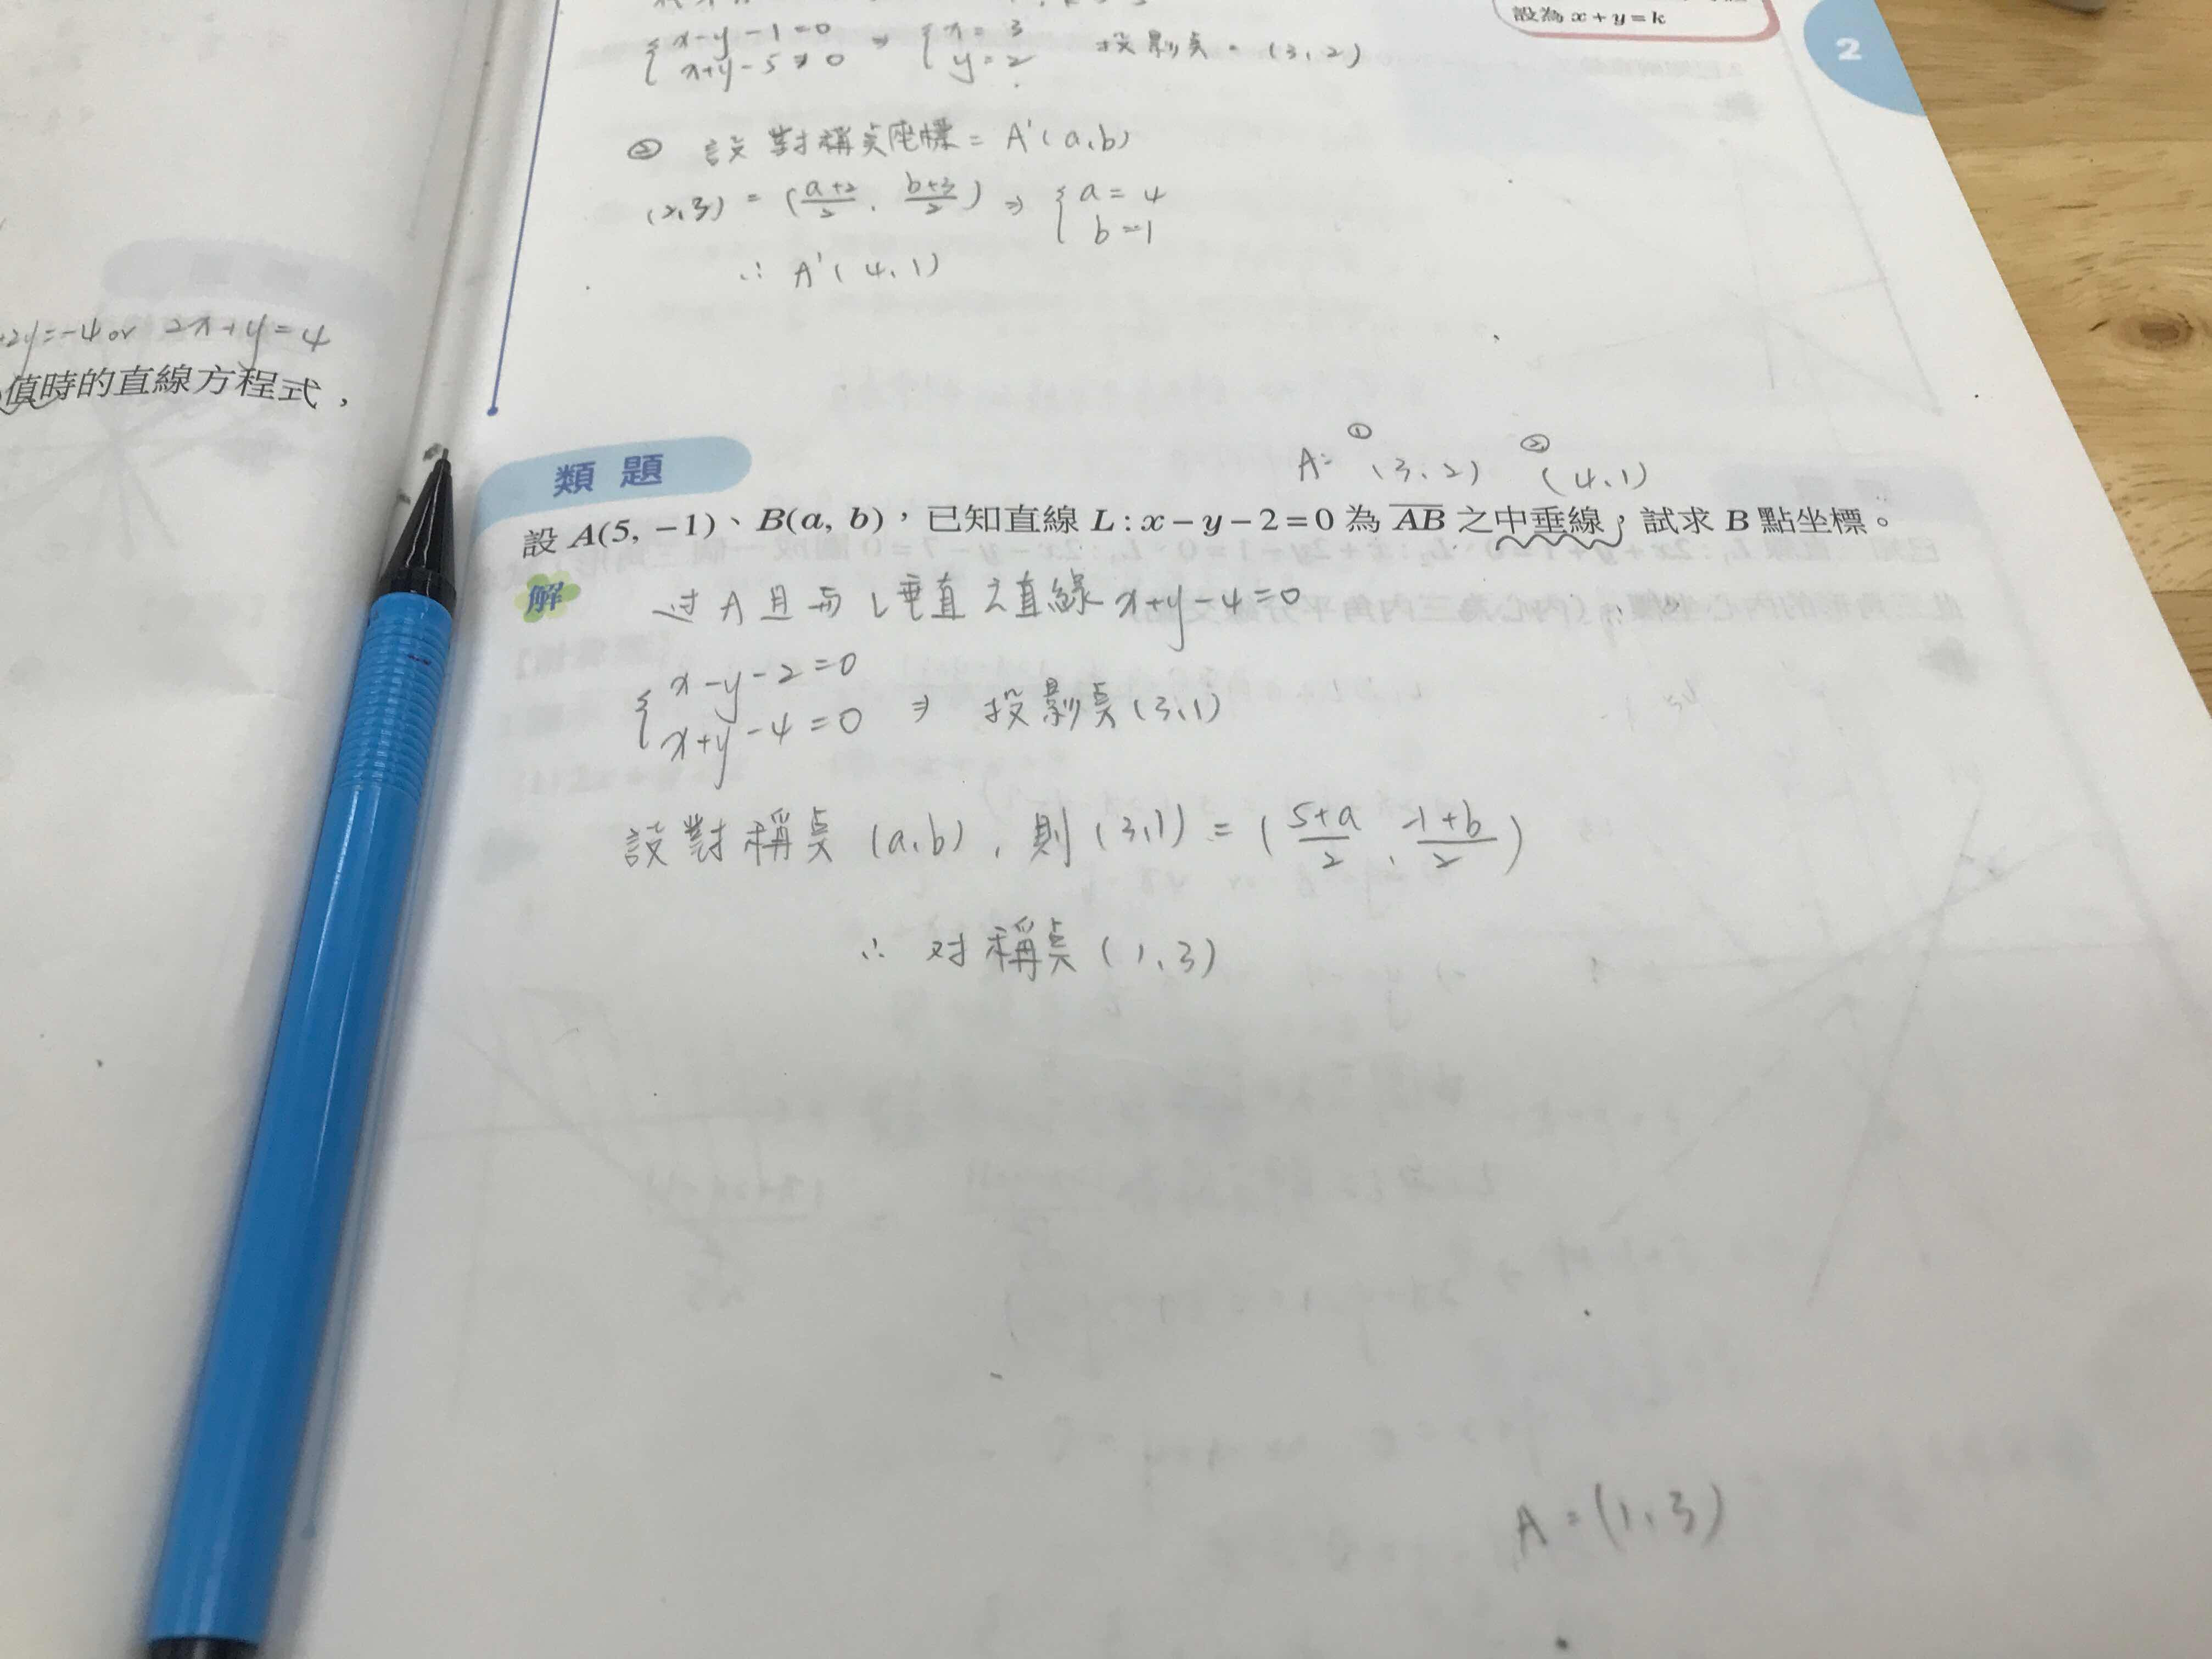 設為 x + y = k
2
{ x-y-1=0 ⇒ { x=3 投影点=(3,2)
x+y-5=0 y=2
② 設對稱点座標=A'(a,b)
(2,3) = (a+2/2, b+3/2) ⇒ { a=4
b=1
∴ A'(4,1)
+2y=-4 or 2x+y=4
值時的直線方程式,
① ②
A: (3,2) (4,1)
類題
設 A(5, −1)、B(a, b),已知直線 L : x − y − 2 = 0 為 AB 之中垂線,試求 B 點坐標。
解 过A且与L垂直之直線 x+y-4=0
{ x-y-2=0
x+y-4=0 ⇒ 投影点(3,1)
設對稱点(a,b),則(3,1)=(5+a/2, -1+b/2)
∴ 对稱点(1,3)
A=(1,3)